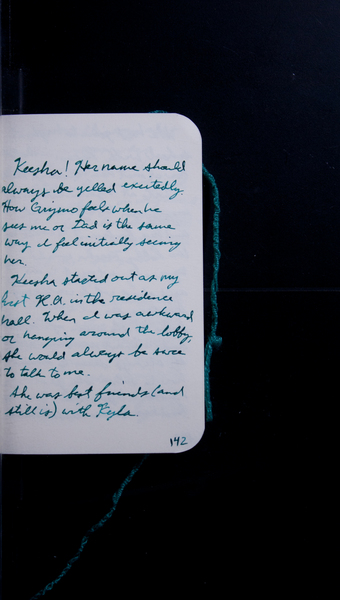 Keesha! Her name should
always be yelled excitedly.
How Gizmo feels when he
sees me or Dad is the same
way I feel initially seeing
her.
Keesha started out as my
best R.A. in the residence
hall. When I was awkward
or hanging around the lobby,
she would always be sure
to talk to me.
She was best friends (and
still is) with Kyla.
142